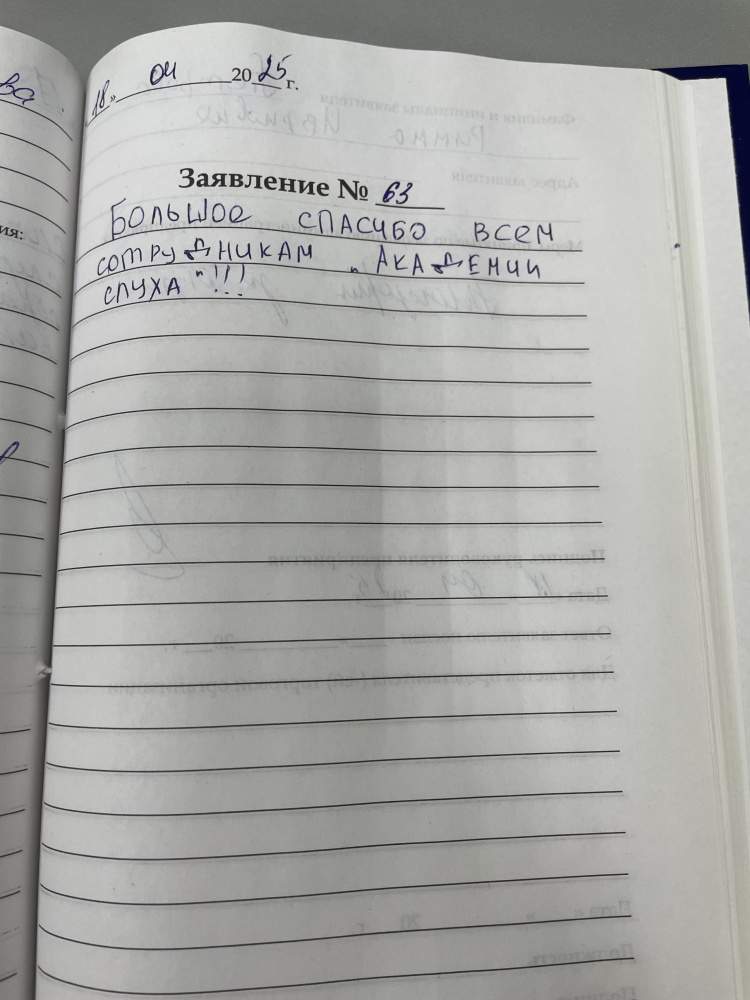 18 » 04 2025 г.
Заявление № 63
БОЛЬШОЕ СПАСИБО ВСЕМ
СОТРУДНИКАМ „АКАДЕМИИ
СЛУХА"!!!
ва
ия: